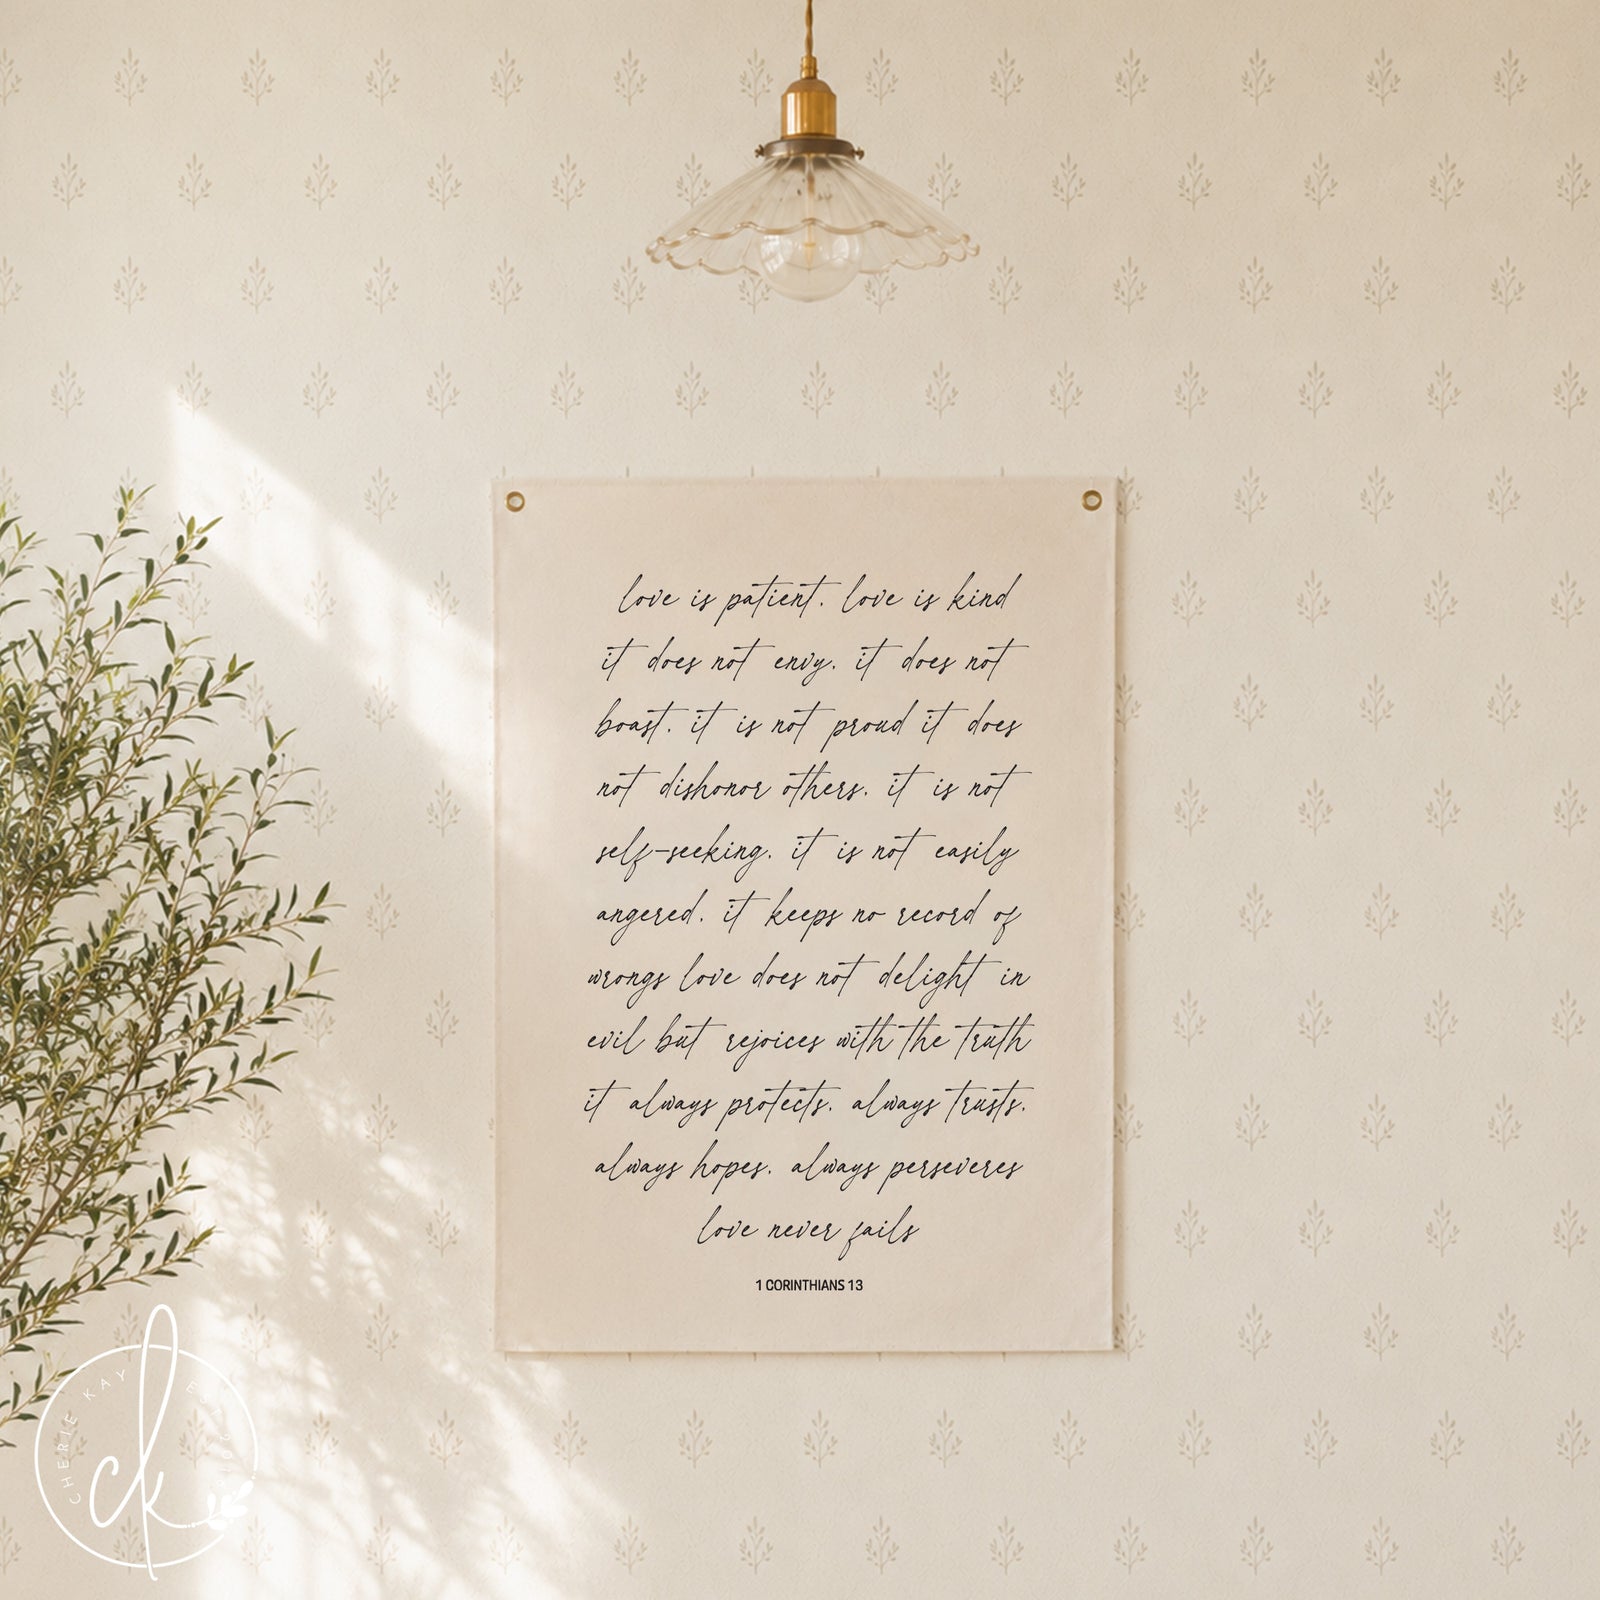 love is patient. love is kind
it does not envy. it does not
boast. it is not proud it does
not dishonor others. it is not
self-seeking. it is not easily
angered. it keeps no record of
wrongs love does not delight in
evil but rejoices with the truth
it always protects. always trusts.
always hopes. always perseveres
love never fails
1 CORINTHIANS 13
CHERIE KAY
ck